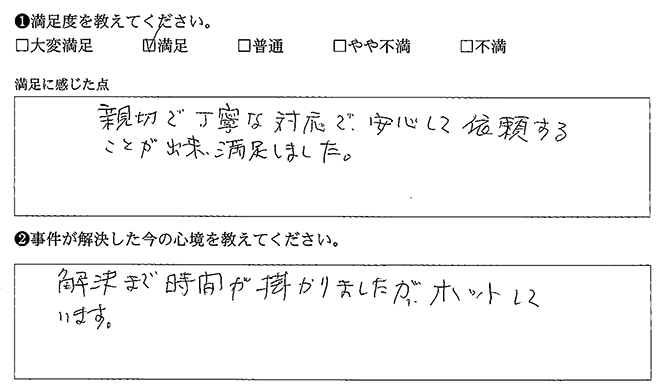 ❶満足度を教えてください。
□大変満足 ☑満足 □普通 □やや不満 □不満
満足に感じた点
親切で丁寧な対応で、安心して依頼する
ことが出来、満足しました。
❷事件が解決した今の心境を教えてください。
解決まで時間が掛かりましたが、ホットして
います。